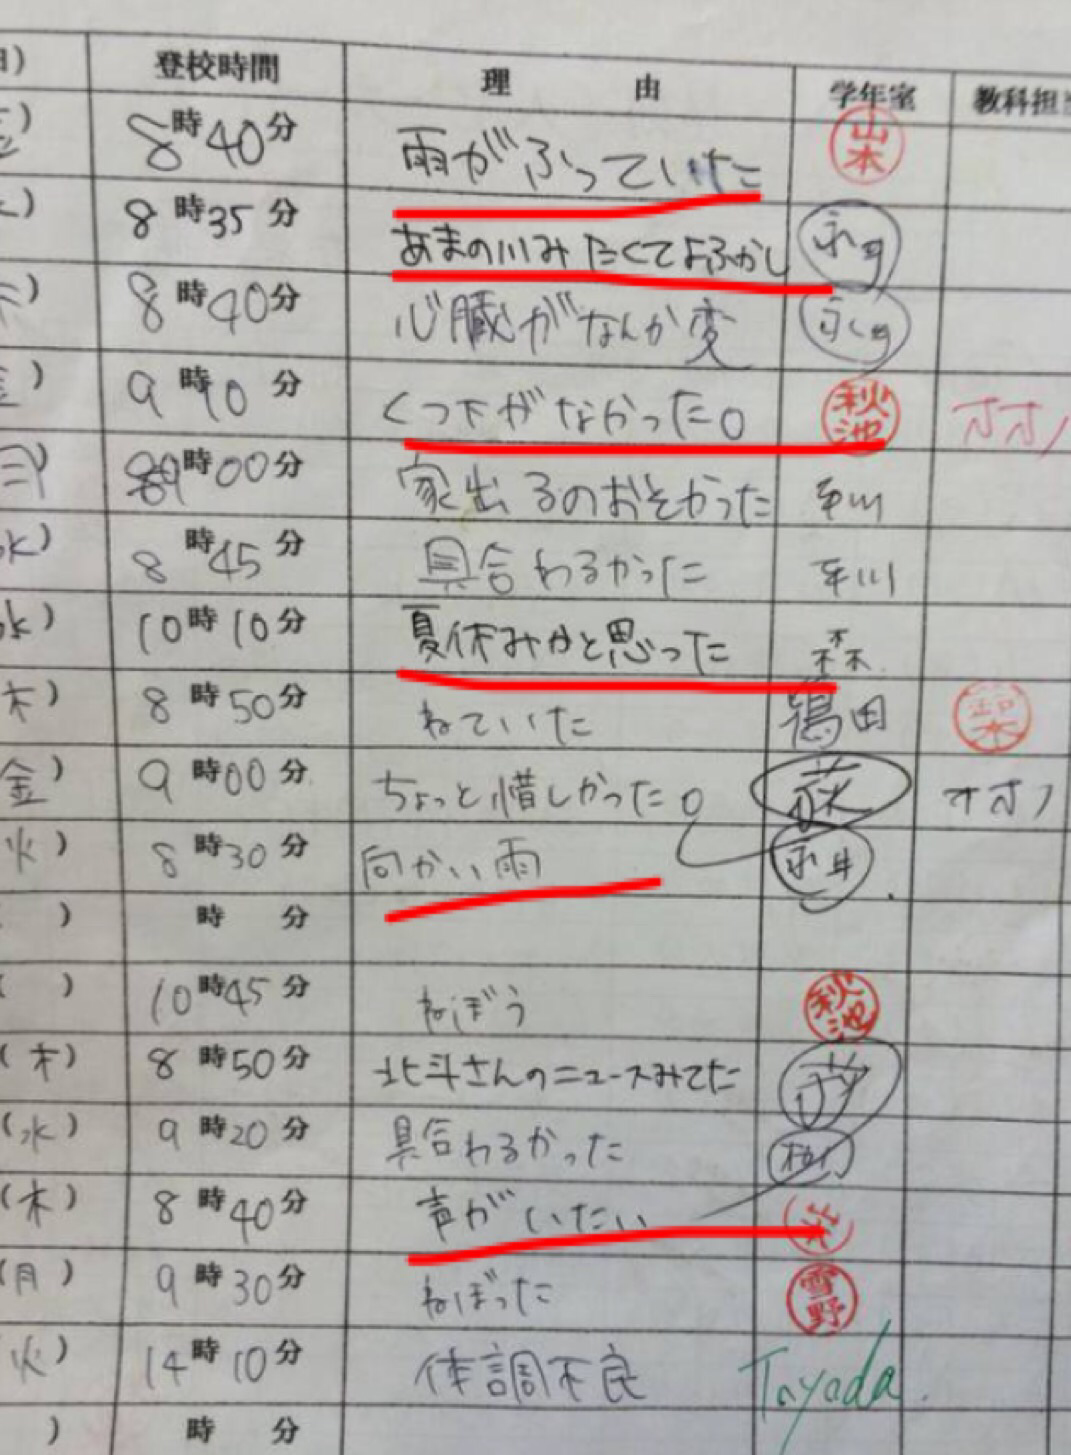 登校時間 理由 学年室 教科担当
8時40分 雨がふっていた 山本
8時35分 あまの川みたくてよふかし 永井
8時40分 心臓がなんか変 永井
9時10分 くつ下がなかった。 秋池 オオノ
9時00分 家出るのおそかった 平川
8時45分 具合わるかった 平川
(水) 10時10分 夏休みかと思った 森
(木) 8時50分 ねていた 鶴田 鈴木
(金) 9時00分 ちょっと惜しかった。 オオノ
(火) 8時30分 向かい雨 永井
( ) 時 分
( ) 10時45分 ねぼう 秋池
(木) 8時50分 北斗さんのニュースみてた
(水) 9時20分 具合わるかった
(木) 8時40分 声がいたい
(月) 9時30分 ねぼった 雪野
(火) 14時10分 体調不良 Toyoda.
) 時 分